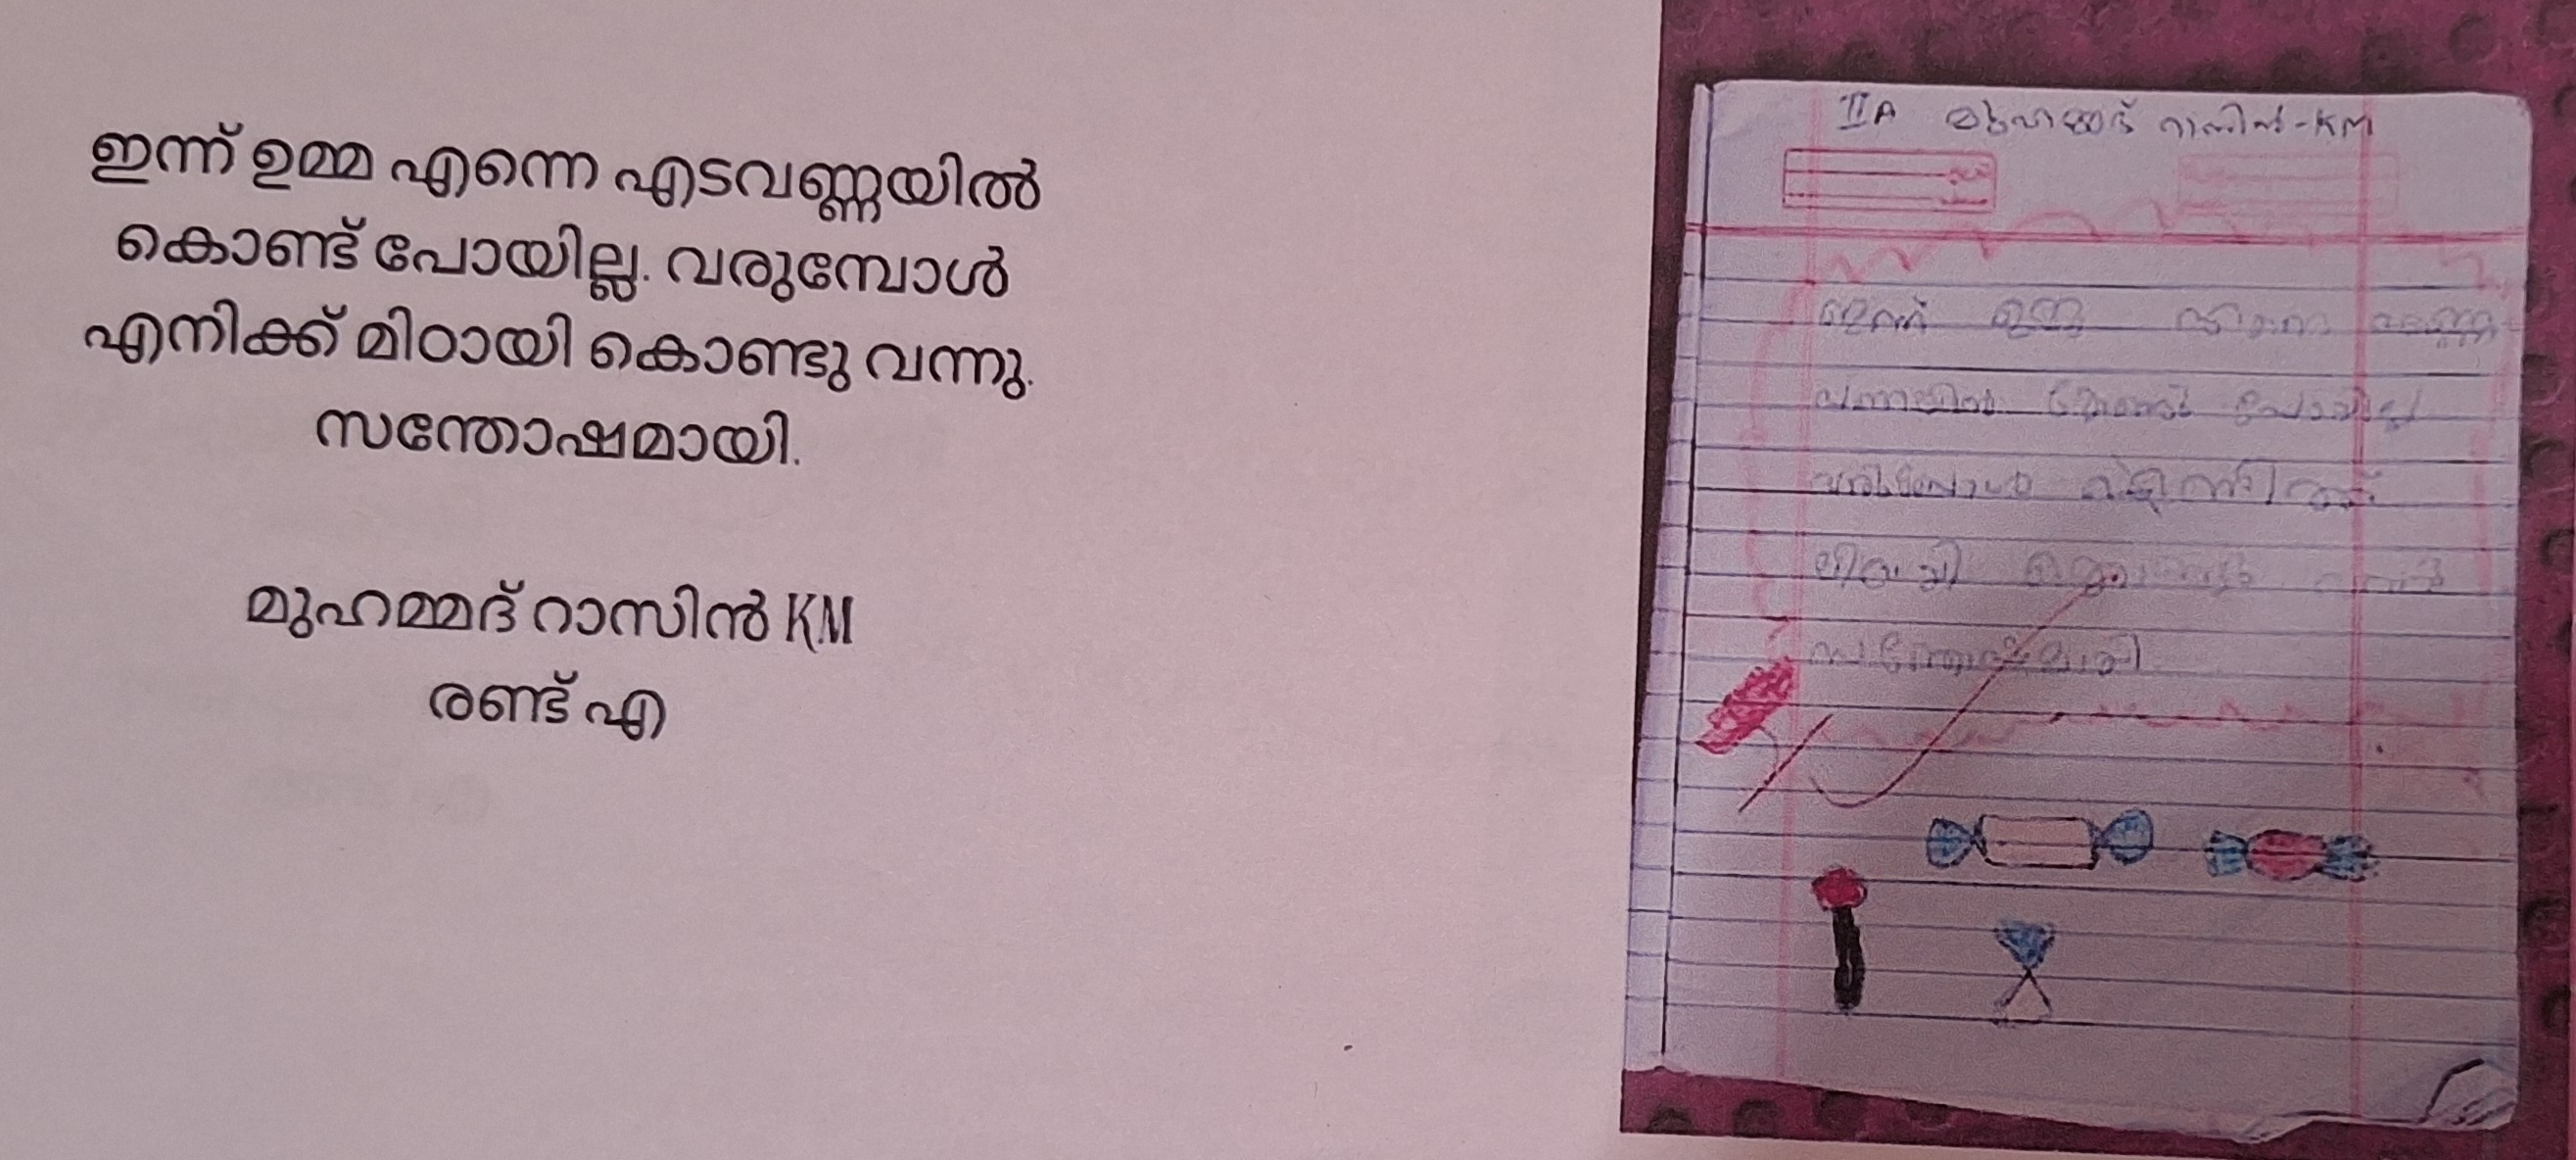 ഇന്ന് ഉമ്മ എന്നെ എടവണ്ണയിൽ
കൊണ്ട് പോയില്ല. വരുമ്പോൾ
എനിക്ക് മിഠായി കൊണ്ടു വന്നു.
സന്തോഷമായി.
മുഹമ്മദ് റാസിൻ KM
രണ്ട് എ
II A മുഹമ്മദ് റാസിൻ-KM
ഇന്ന് ഉമ്മ
പോയില്ല
സന്തോഷമായി